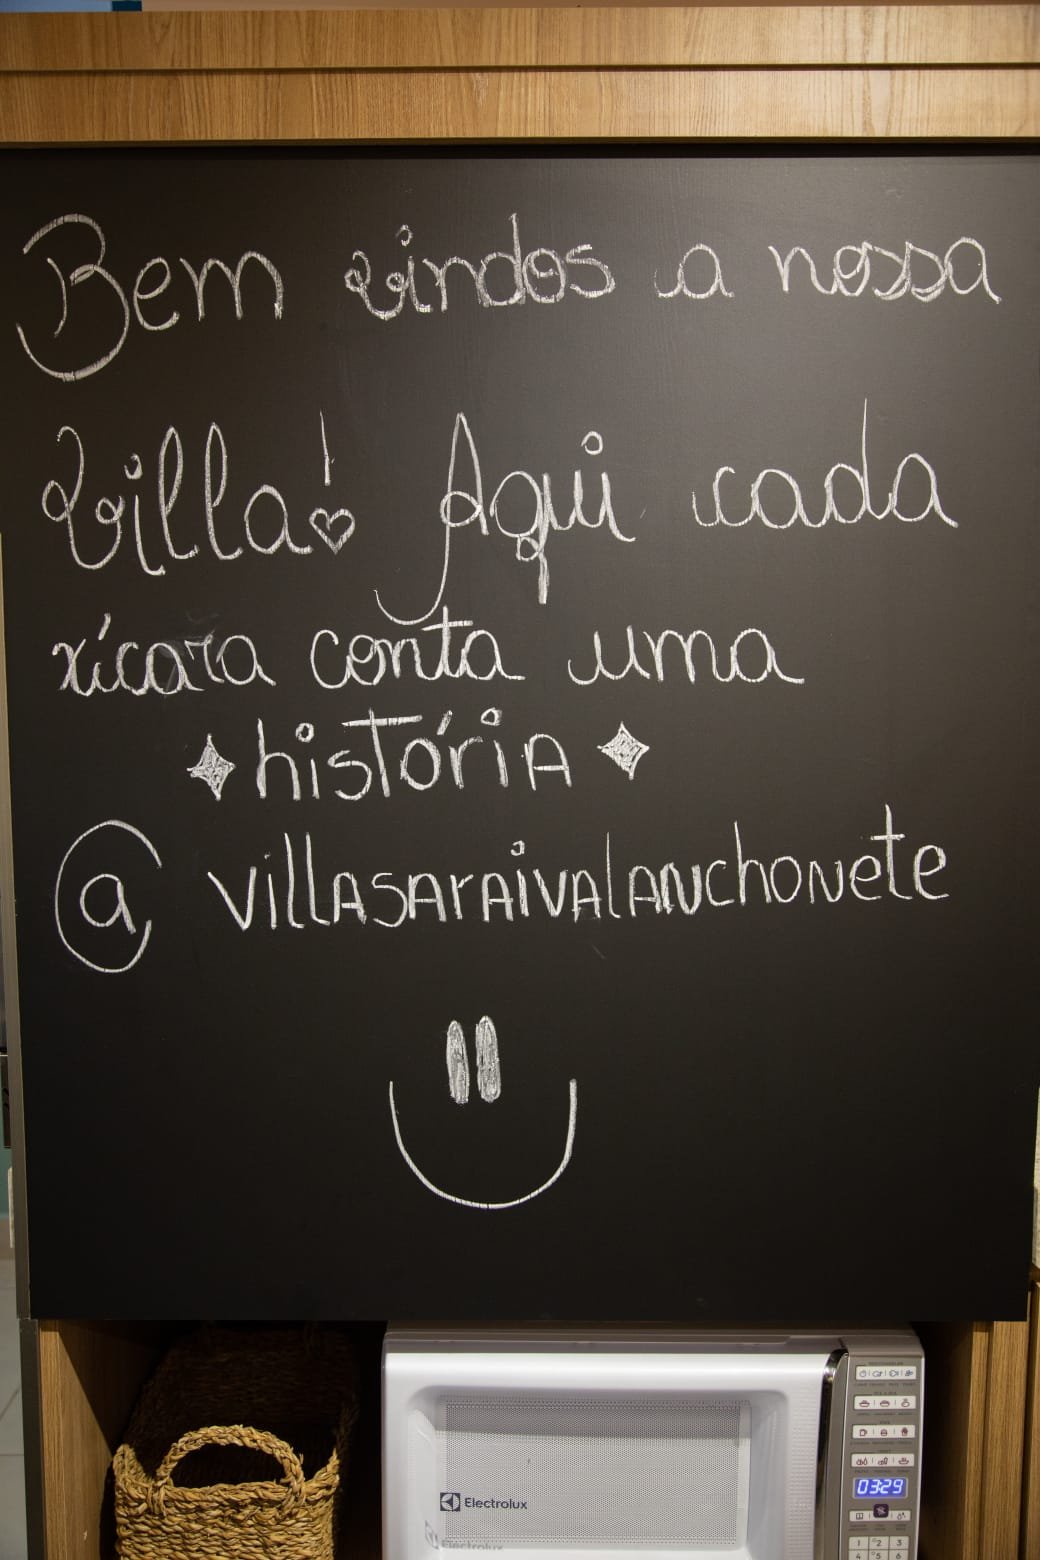 Bem vindos a nossa
Villa! Aqui cada
xícara conta uma
história
@villasaraivalanchonete
Electrolux
03:29
1 2 3
4 5 6